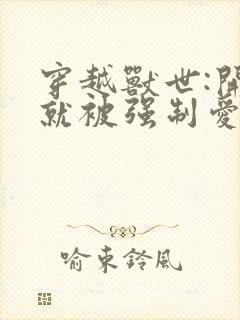 穿越獸世:開
就被强制愛
喻東鈴風